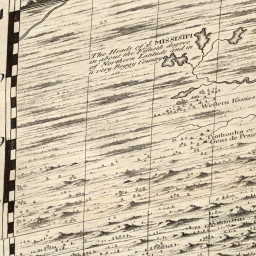 The Heads of y.e MISSISIPI
in about the Fiftieth degree
of Northern Latitude and in
a very Boggy Country
Western
Tinthonha or
Gens de